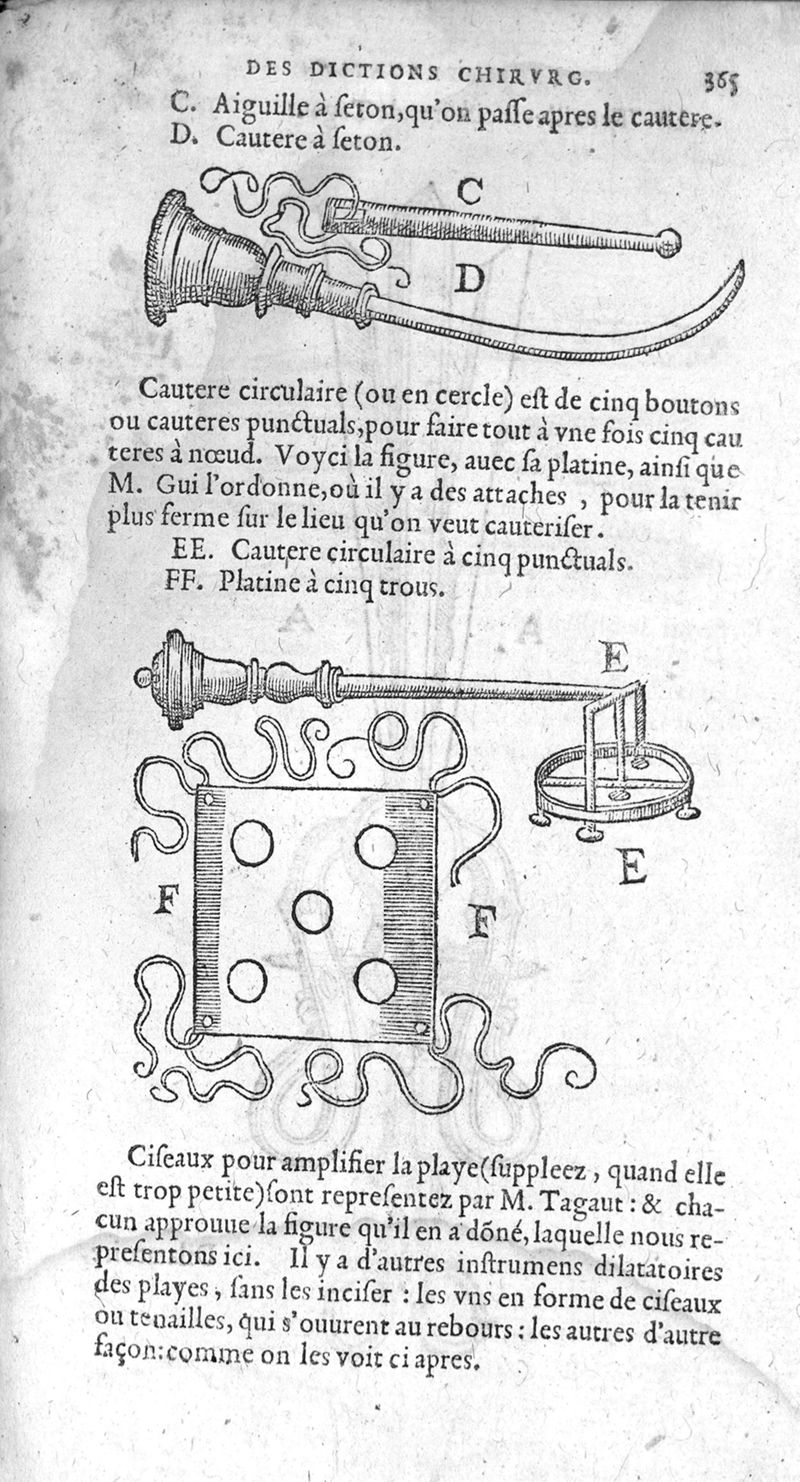 DES DICTIONS CHIRVRG. 365
C. Aiguille à ſeton,qu'on paſſe apres le cautere.
D. Cautere à ſeton.
C
D
Cautere circulaire (ou en cercle) eſt de cinq boutons
ou cauteres punctuals,pour faire tout à vne fois cinq cau
teres à nœud. Voyci la figure, auec ſa platine, ainſi que
M. Gui l'ordonne,où il y a des attaches , pour la tenir
plus ferme ſur le lieu qu'on veut cauteriſer.
EE. Cautere circulaire à cinq punctuals.
FF. Platine à cinq trous.
E
E
F
F
Ciſeaux pour amplifier la playe(ſuppleez , quand elle
eſt trop petite)ſont repreſentez par M. Tagaut : & cha-
cun approuue la figure qu'il en a dõné, laquelle nous re-
preſentons ici. Il y a d'autres inſtrumens dilatatoires
des playes , ſans les inciſer : les vns en forme de ciſeaux
ou tenailles, qui s'ouurent au rebours : les autres d'autre
façon:comme on les voit ci apres.